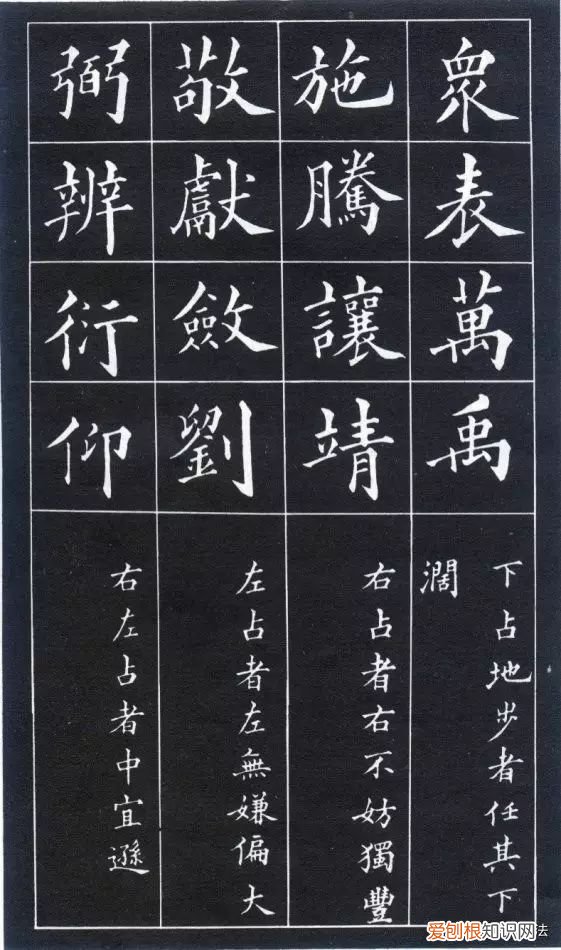 衆表萬禹
下占地步者任其下
濶
施騰讓靖
右占者右不妨獨豐
敬獻斂劉
左占者左無嫌偏大
弼辨衍仰
右左占者中宜遜
爱刨根知识网法